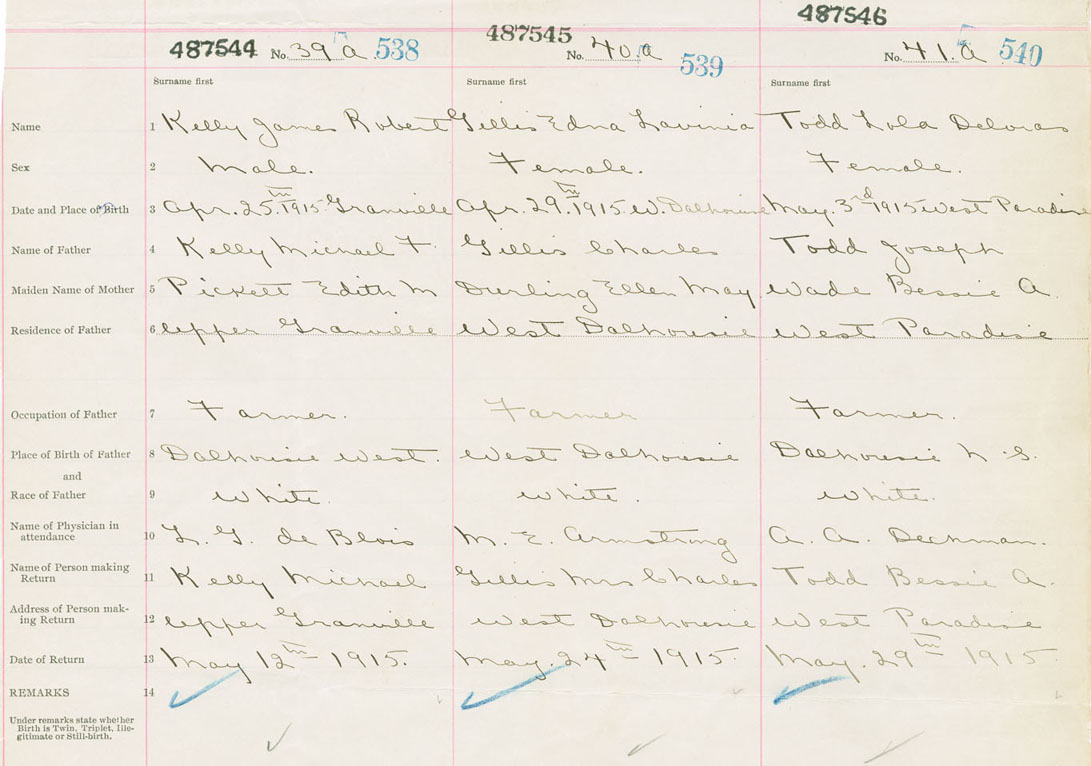 487544 No. 39 a 538 487545 No. 40.a 539 487546 No. 41.a 540
Surname first Surname first Surname first
Name 1 Kelly James Robert Gillis Edna Lavinia Todd Lola Deloras
Sex 2 Male. Female. Female.
Date and Place of Birth 3 Apr. 25.th 1915 Granville Apr. 29.th 1915 W. Dalhousie May. 3rd 1915 West Paradise
Name of Father 4 Kelly Michael F. Gillis Charles Todd Joseph
Maiden Name of Mother 5 Pickett Edith M Durling Ellen May. Wade Bessie A.
Residence of Father 6 Upper Granville West Dalhousie West Paradise
Occupation of Father 7 Farmer. Farmer Farmer.
Place of Birth of Father 8 Dalhousie West. West Dalhousie Dalhousie N.S.
and
Race of Father 9 White. White. White.
Name of Physician in attendance 10 L. G. de Blois M. E. Armstrong A. A. Dechman.
Name of Person making Return 11 Kelly Michael Gillis Mrs Charles Todd Bessie A.
Address of Person mak-ing Return 12 Upper Granville West Dalhousie West Paradise
Date of Return 13 May 12th 1915. May. 24th 1915. May. 29th 1915.
REMARKS 14
Under remarks state whether
Birth is Twin, Triplet, Ille-
gitimate or Still-birth.